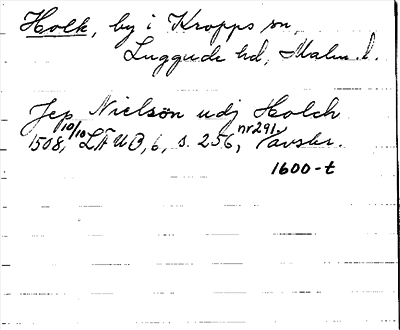 Holk, by i Kropps sn,
Luggude hd, Malm. l.
Jep Nielsön udj Holch
1508 10/10, LÄUB, 6, s. 256, nr 291, Avskr.
1600-t